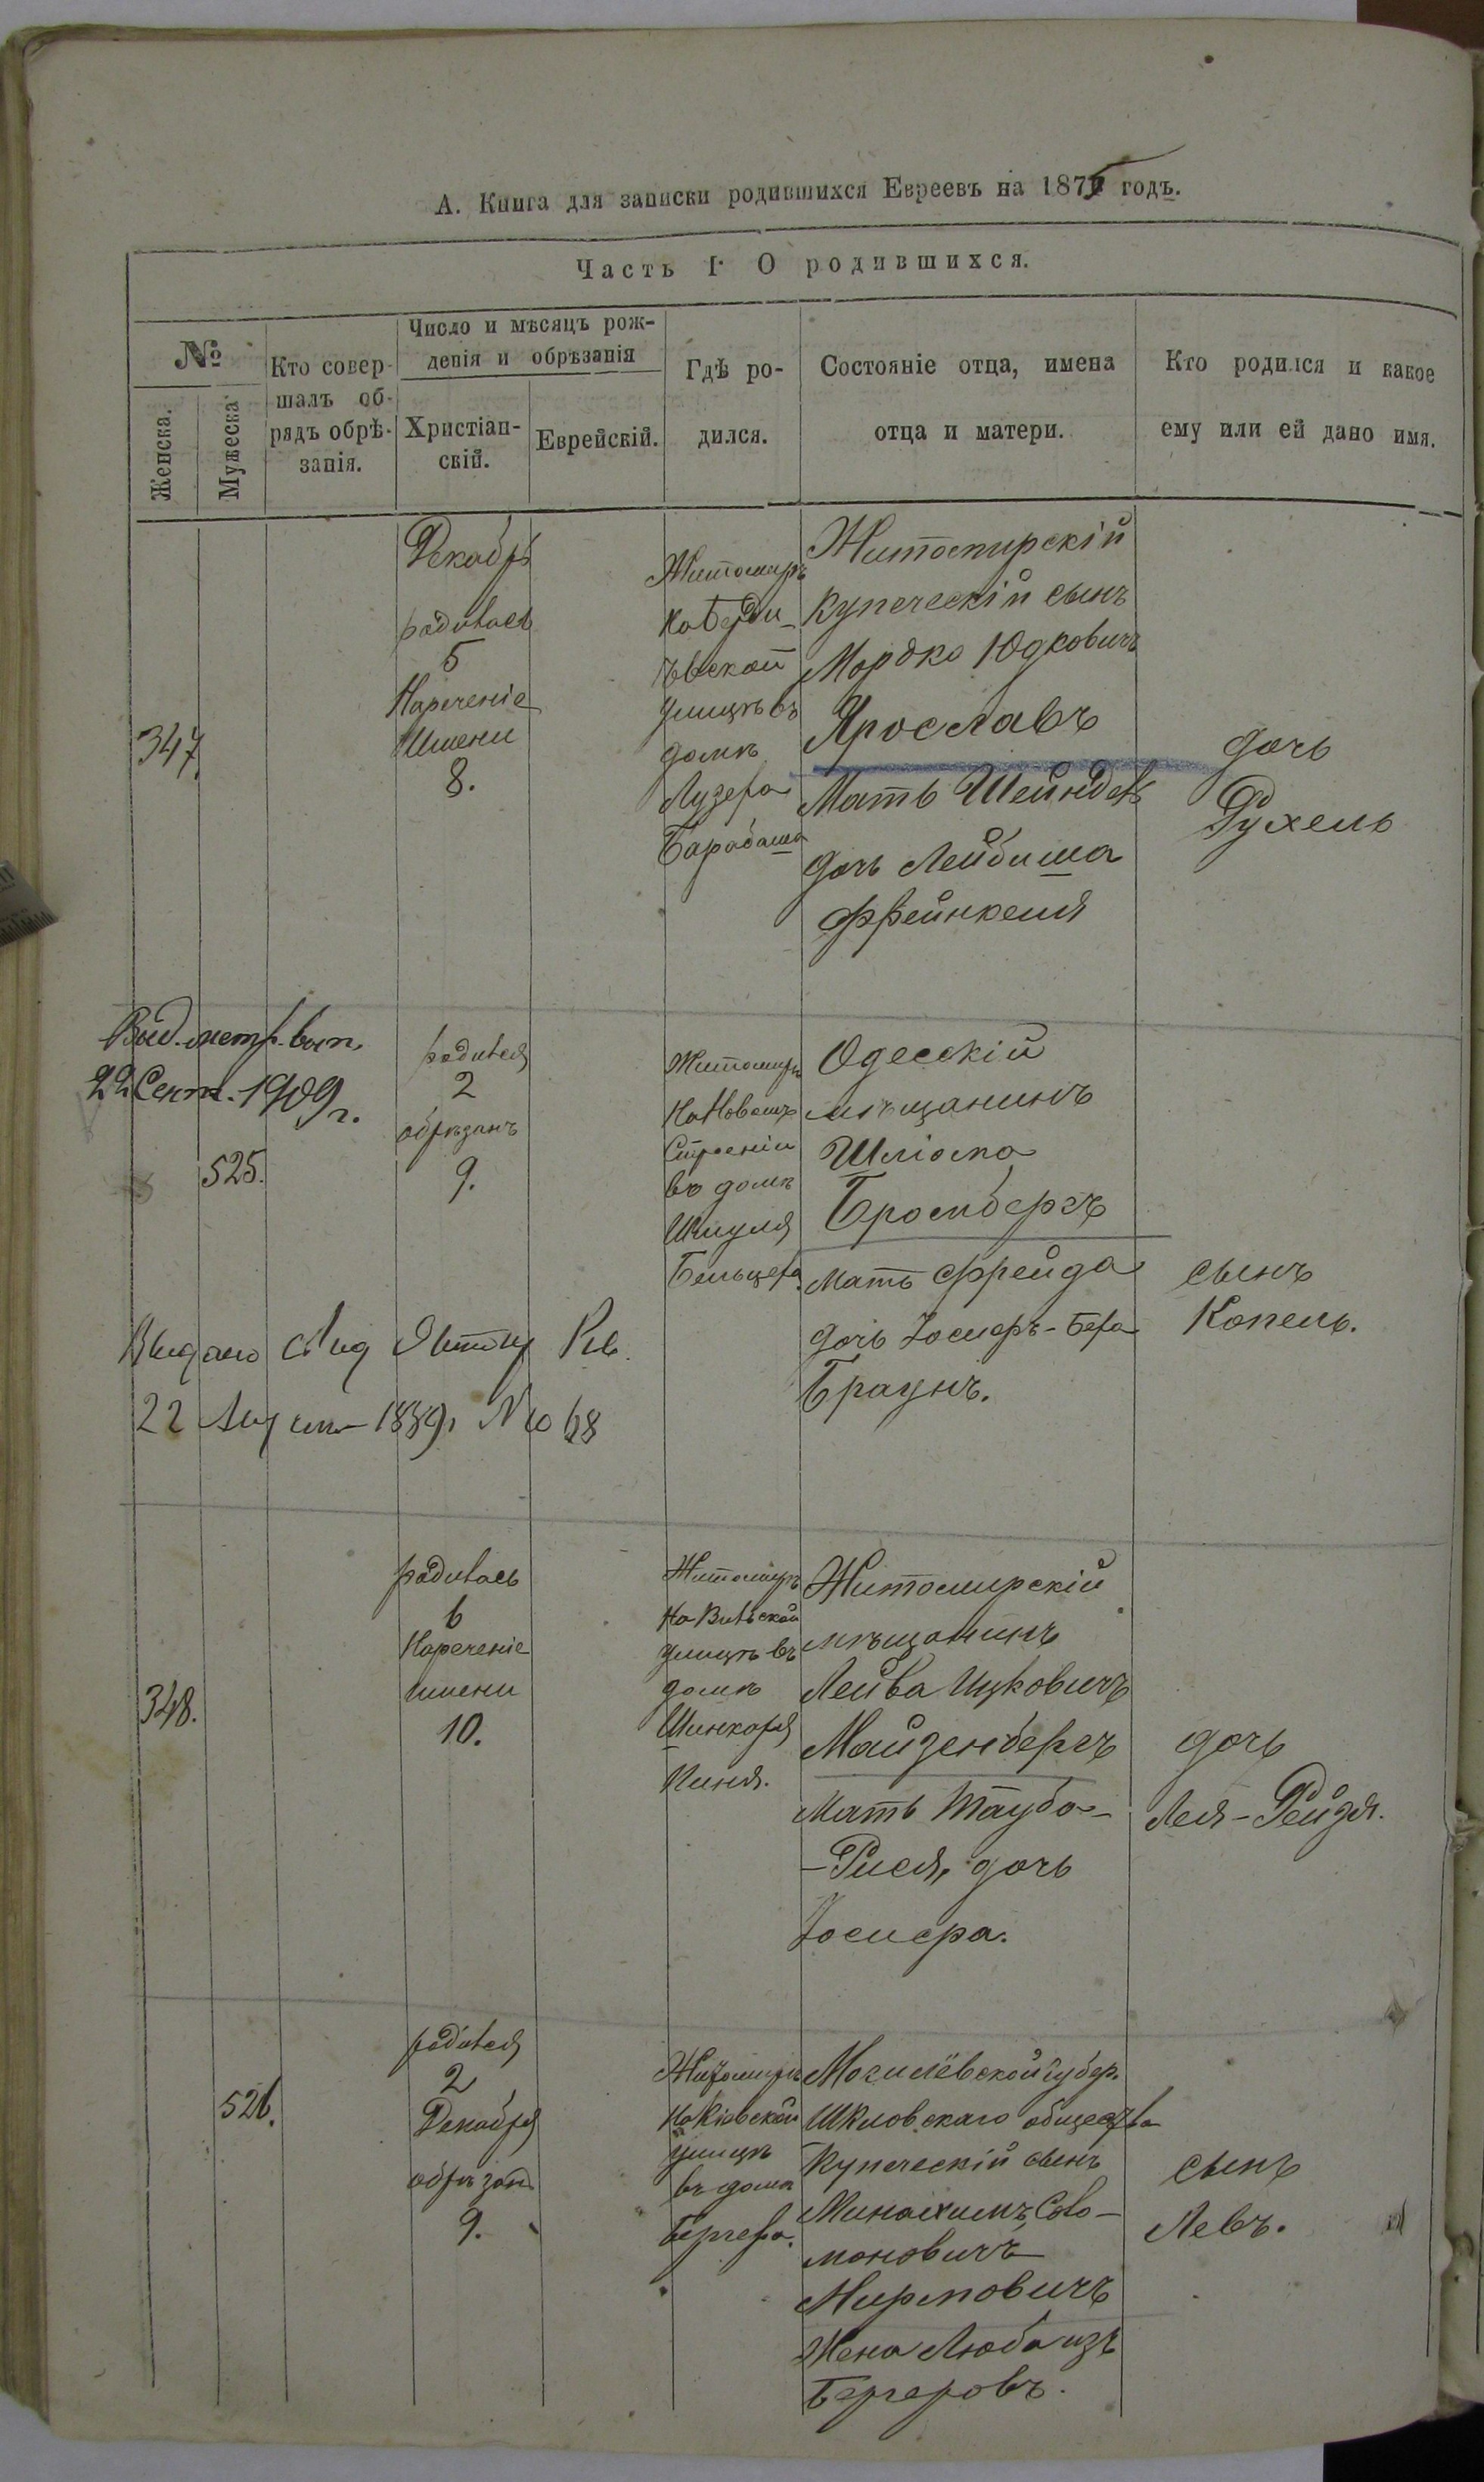 А. Книга для записки родившихся Евреевъ на 1875 годъ.
Часть I О родившихся.
№
Женска.
Мужеска
Кто совер-
шалъ об-
рядъ обрѣ-
занія.
Число и мѣсяцъ рож-
денія и обрѣзанія
Христіан-
скій.
Еврейскій.
Гдѣ ро-
дился.
Состояніе отца, имена
отца и матери.
Кто родился и какое
ему или ей дано имя.
347.
Декабрь
родилась
5
Нареченіе
Имени
8.
Житомиръ
на Берди-
чѣвской
улицѣ въ
домѣ
Лузера
Барабаша
Житомирскій
купеческій сынъ
Мордко Юдковичъ
Ярославъ
Мать Шейндель
дочь Лейбиша
Френкеля
дочь
Рухель
Выд. метр. вып.
22 Сент. 1909 г.
525.
родился
2
обрѣзанъ
9.
Житомиръ
На Новомъ
Строеніи
въ домѣ
Шмуля
Бельцера.
Одесскій
мѣщанинъ
Шліома
Бромбергъ
Мать Фрейда
дочь Іосифъ-Бера
Браунъ.
сынъ
Копель.
Выдано
22 Август 1889 г № 68
348.
родилась
6
Нареченіе
имени
10.
Житомиръ
На Вильской
улицѣ въ
домѣ
Шинкаря
Киня.
Житомирскій
мѣщанинъ
Лейба Ицковичъ
Майзенбергъ
Мать Тауба-
-Рися, дочь
Іосифа.
дочь
Лея-Рейзя.
526.
родился
2
Декабря
обрѣзанъ
9.
Житомиръ
На Кіевской
улицѣ
въ домѣ
Бергера.
Могилёвской губер.
Шкловскаго общества
Купеческій сынъ
Минахимъ Соло-
моновичъ
Мирмовичъ
Жена Люба изъ
Бергеровъ.
сынъ
Левъ.